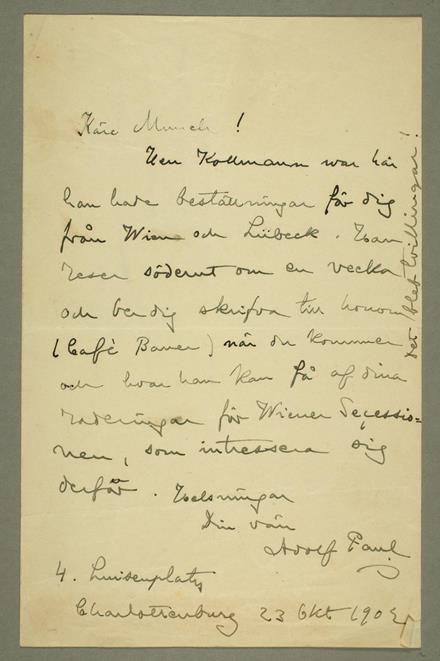 Käre Munch!
Herr Kollmann war här
han hade beställningar för dig
från Wien och Lübeck. Han
reser söderut om en vecka
och ber dig skrifva till honom
(Café Bauer) når du kommer
och hvar han kan få af dina
raderingar för Wiener Secessio=
nen, som intressera sig
derför. Helsningar
Din vän
Adolf Paul
4. Luisenplatz
Charlottenburg 23 Okt 1902
det blef tvillingar!